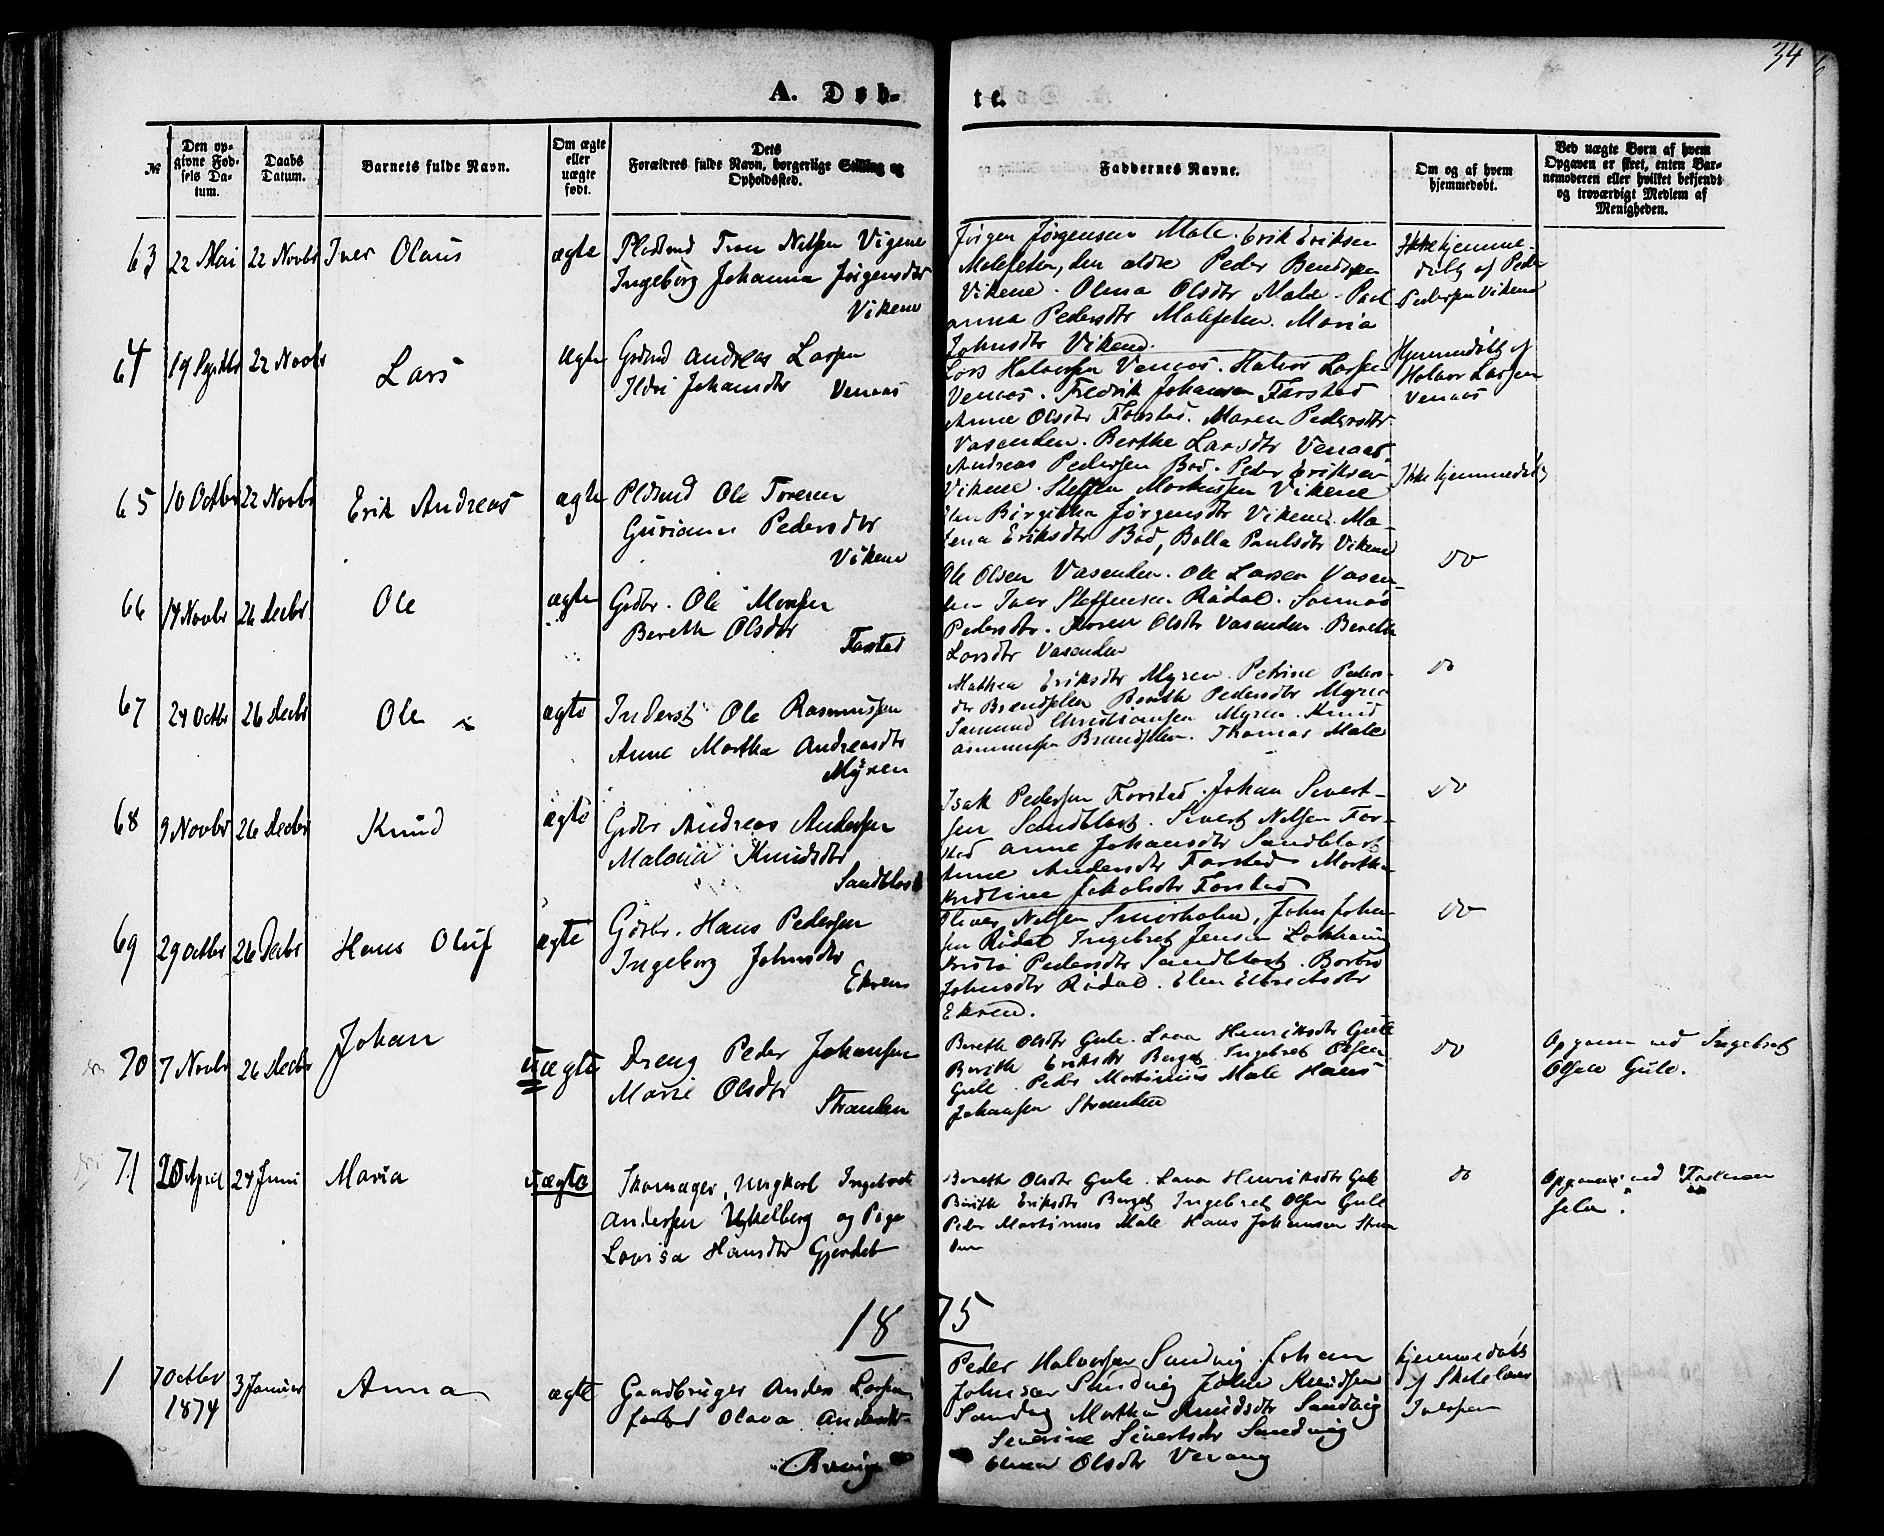 34
A. Døb-
te.
№
Den op-
givne Fød-
sels Da-
tum.
Daabs
Datum.
Barnets fulde Navn.
Om ægte
eller
uægte
født.
Dets
Forældres fulde Navn, borgerlige Stilling og
Opholdssted.
Faddernes Navne.
Om og af hvem
hjemmedøbt.
Ved uægte Børn af hvem
Opgaven er skeet, enten Bar-
nemoderen eller hvilket bekjendt
og troværdigt Medlem af
Menigheden.
63 22 Mai 22 Novbr Iver Olaus ægte
Nilsen Vigene
Ingeborg Johanna Jørgensdtr
Vikene
Jørgen Jørgensen Male. Erik Eriksen
den ældre Peder Bendiksen
Vikene. Olina Olsdtr Male.
Pedersdtr Malefeten. Maria
Johnsdtr Vikene.
Ikke hjemme-
døbt af Peder
Pedersen Vikene
64 19 Septbr 22 Novbr Lars ægte
Grdmd Andreas Larsen
Ildri Johansdtr Venaas
Lars Halvorsen Venaas. Halvor Larsen
Venaas. Fredrik Johansen Farstad
Anne Olsdtr Farstad. Maren Pedersdtr
Vasenden. Berthe Larsdtr Venaas.
Hjemmedøbt af
Halvor Larsen
Venaas
65 10 Octbr 22 Novbr Erik Andreas ægte
Pldsmd Ole Toresen
Gurianna Pedersdtr
Vikene
Andreas Pedersen Bod. Peder Eriksen
Vikene. Steffen Vikene
Birgitha Jørgensdtr Vikene. Ma-
Eriksdtr Bod, Bolla Paulsdtr Vikene
Ikke hjemmedøbt
66 14 Novbr 26 Decbr Ole ægte
Grdbr. Ole Monsen
Bereth Olsdtr
Farstad
Ole Olsen Vasenden. Ole Larsen Vasen-
den Iver Steffensen Rødal.
Pedersdtr. Karen Olsdtr Vasenden. Bereth
Larsdtr Vasenden
do
67 24 Octbr 26 Decbr Ole ægte
Inderst Ole Rasmussen
Anne Martha Andreasdtr
Myren
Mathea Eriksdtr Myren. Petrine Peders-
dtr Bereth Pedersdtr Myren
Christiansen Myren. Knud
Thomas Male
do
68 9 Novbr 26 Decbr Knud ægte
Grdbr Andreas Andersen
Malena Knudsdtr
Sandblost
Isak Pedersen Farstad. Johan Sivert-
sen Sandblost. Sivert Nilsen Far-
stad Anne Johansdtr Sandblost
Anne Andersdtr Farstad Martha
Jakobsdtr Farstad
do
69 29 Octbr 26 Decbr Hans Oluf ægte
Grdbr. Hans Pedersen
Ingeborg Johnsdtr
Ekren
Oliver Nilsen Smørholm, John John-
sen Rødal Ingebret Jensen
Pedersdtr Sandblost.
Johnsdtr Rødal. Elen
Ekren.
do
70 7 Novbr 26 Decbr Johan uægte
Dreng Peder Johansen
Marie Olsdtr
Stranden
Bereth Olsdtr Gule. Lava Henriksdtr Gule
Bereth Eriksdtr Berget. Ingebret Olsen
Gule. Peder Martinius Male Hans
Johansen Stranden
do
Opgaven ved Ingebret
Olsen Gule.
71 20 April 24 Juni Maria uægte
Skomager, Ungkarl Ingebret
Andersen og Pige
Lovisa Hansdtr Gjerdet
Bereth Olsdtr Gule. Lava Henriksdtr Gule
Bereth Eriksdtr Berget Ingebret Olsen Gule
Peder Martinus Male Hans Johansen Stran
den
do
Opgaven ved Faderen
selv.
1875
1 7 Octbr
1874
3 Januar Anna ægte
Gaardbruger Anders Larsen
Olava Andersdtr
Peder Halvorsen Sandvig Johan
Johnsen Sandvig John Knudsen
Sandvig Martha Knudsdtr Sandvig
Severine Sivertsdtr Sandvig
Olsdtr
hjemmedøbt
af Skolelærer
Iversen